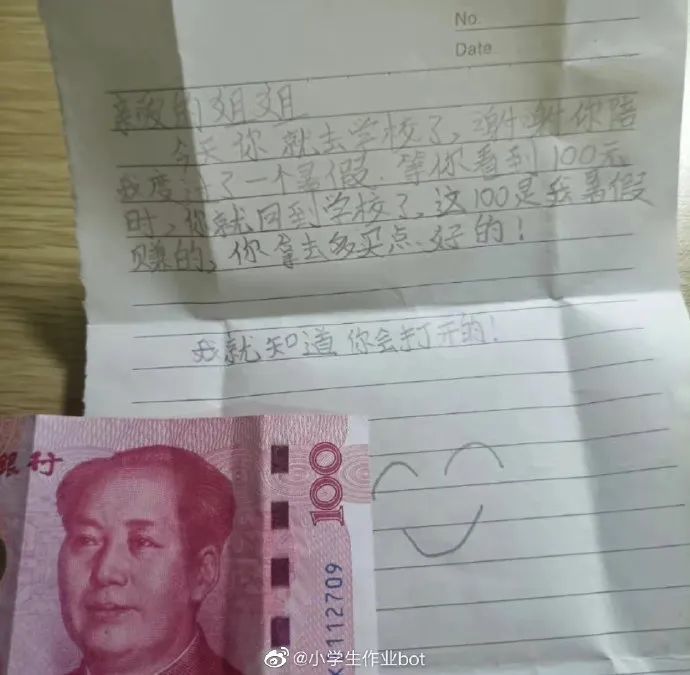 No.
Date
亲敬的姐姐
今天你就去学校了，谢谢你陪
我度过了一个暑假.等你看到100元
时，你就回到学校了，这100是我暑假
赚的，你拿去多买点好的！
我就知道你会打开的！
银行
100
112709
@小学生作业bot